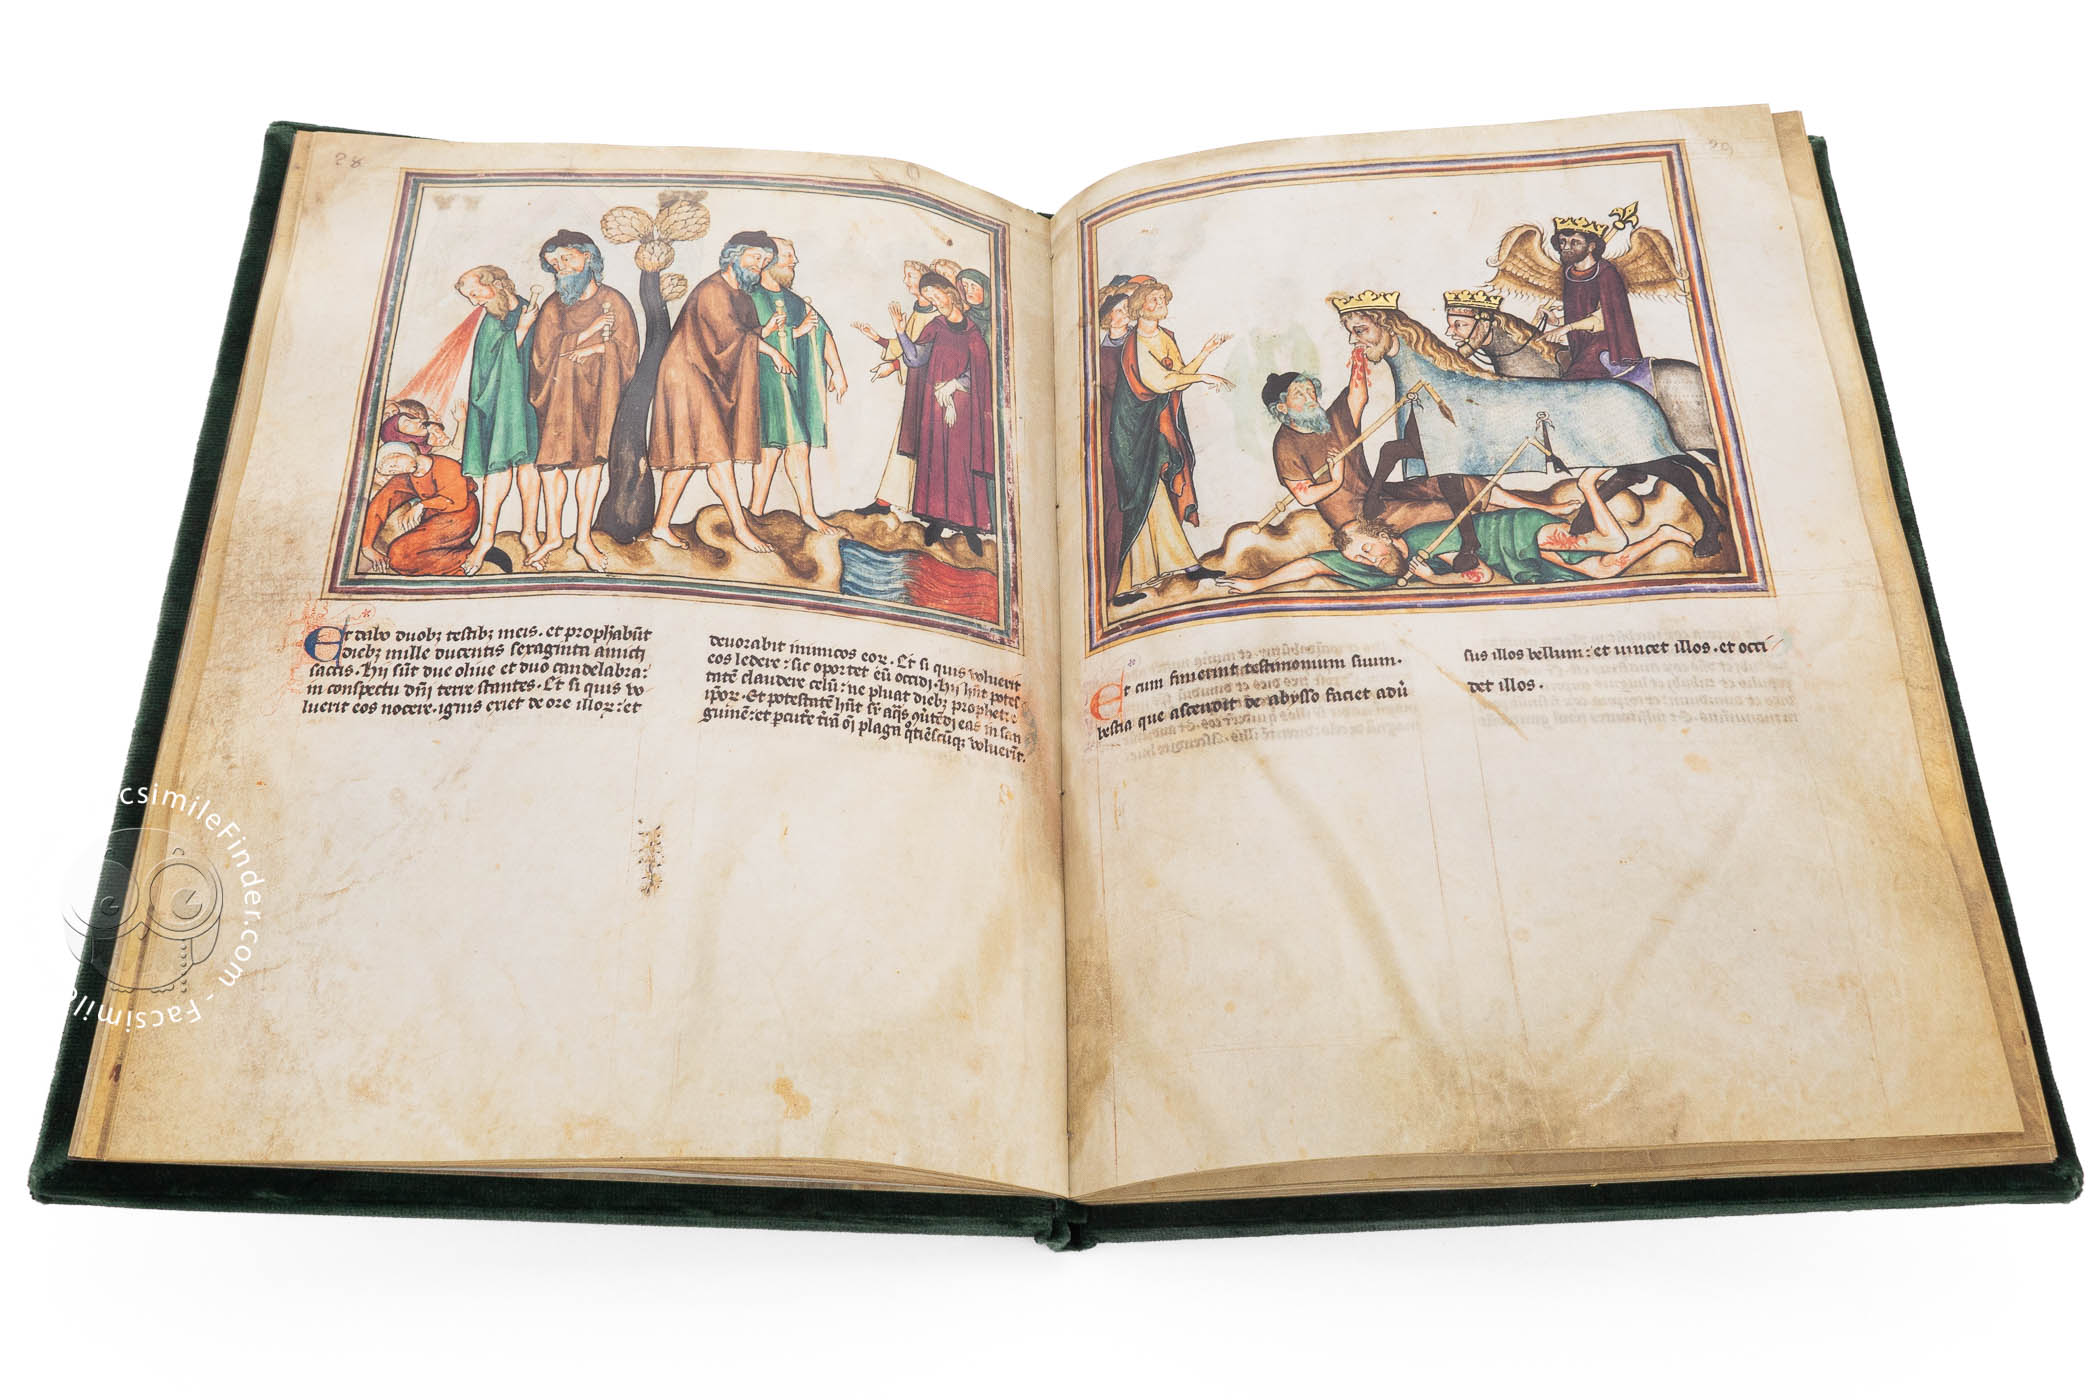 28
Et dabo duobȝ testibȝ meis. et prophabūt
diebȝ mille ducentis sexaginta amicti
saccis. hii sūt due olive et duo candelabra:
in conspectu dñi terre stantes. Et si quis vo
luerit eos nocere. ignis exiet de ore illoꝝ: et
devorabit inimicos eoꝝ. Et si quis voluerit
eos ledere: sic oportet eū occidi. hii hñt potes
tatē claudere celū: ne pluat diebȝ prophetie
ipoꝝ. Et potestatē hñt sr̄ aq̄s ꝯūtēdi eas in san
guinē: et ꝑcut̄e t̄rā oī plaga q̄tiēscūqȝ voluerīt.
29
Et cum finierint testimonium suum.
bestia que ascendit de abysso faciet adū̄
sus illos bellum: et vincet illos. et occi
det illos.
FacsimileFinder.com - Facsimile